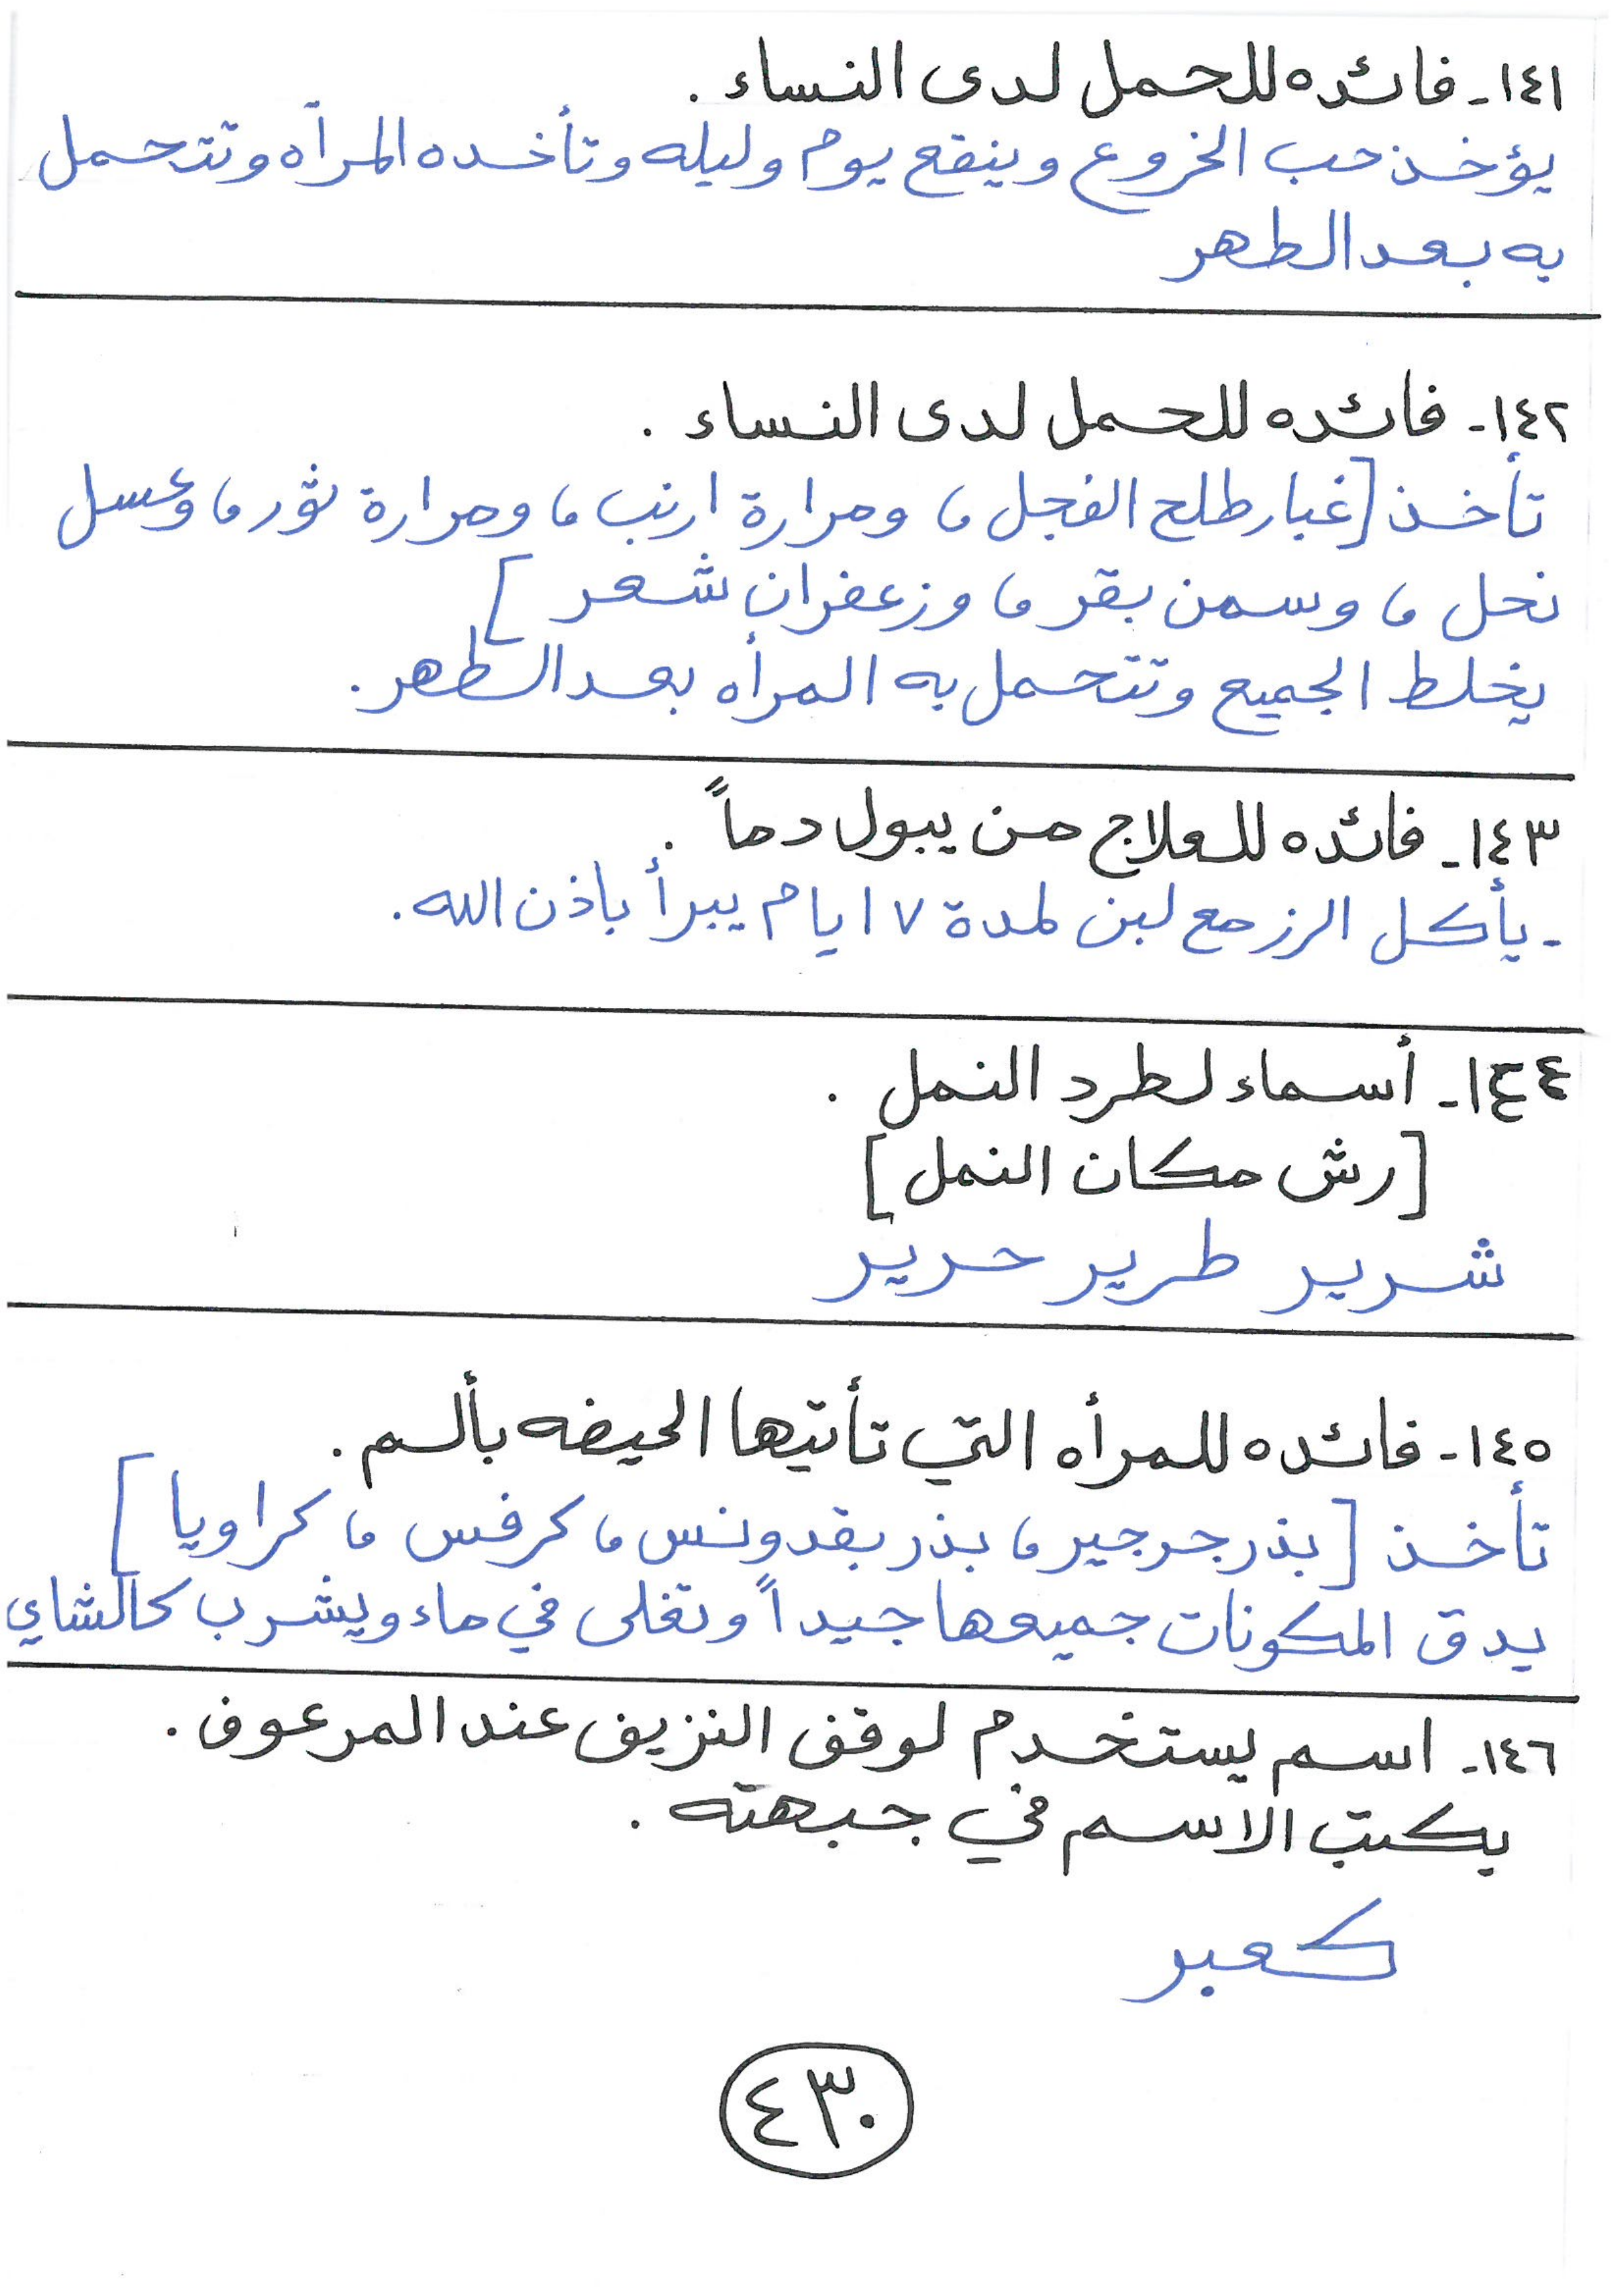 ١٤١- فائده للحمل لدى النساء .
يؤخذ حب الخروع وينقع يوم وليله وتأخده المرآه وتتحمل
به بعد الطهر
١٤٢- فائده للحمل لدى النساء .
تأخذ [غبار طلح الفجل ، ومرارة ارنب ، ومرارة ثور ، وعسل
نحل ، وسمن بقر ، وزعفران شعر ]
يخلط الجميع وتتحمل به المرأه بعد الطهر .
١٤٣- فائده للعلاج من يبول دماً .
- يأكل الرز مع لبن لمدة ٧ ايام يبرأ بإذن الله .
١٤٤- أسماء لطرد النمل .
[ رش مكان النمل ]
شرير طرير حرير
١٤٥- فائده للمرأه التي تأتيها الحيضه بألم .
تأخذ [ بذر جرجير ، بذر بقدونس ، كرفس ، كراويا ]
يدق المكونات جميعها جيداً وتغلى في ماء ويشرب كالشاي
١٤٦- اسم يستخدم لوقف النزيف عند المرعوف .
يكتب الاسم في جبهته .
كعبر
٤٣٠